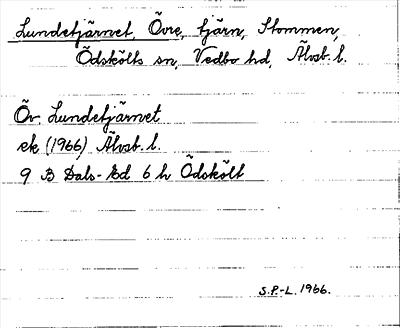 Lundetjärnet, Övre, tjärn, Stommen,
Ödskölts sn, Vedbo hd, Älvsb. l.
Öv. Lundetjärnet
ek (1966) Älvsb. l.
9 B Dals-Ed 6 h Ödskölt
S.P.-L. 1966.